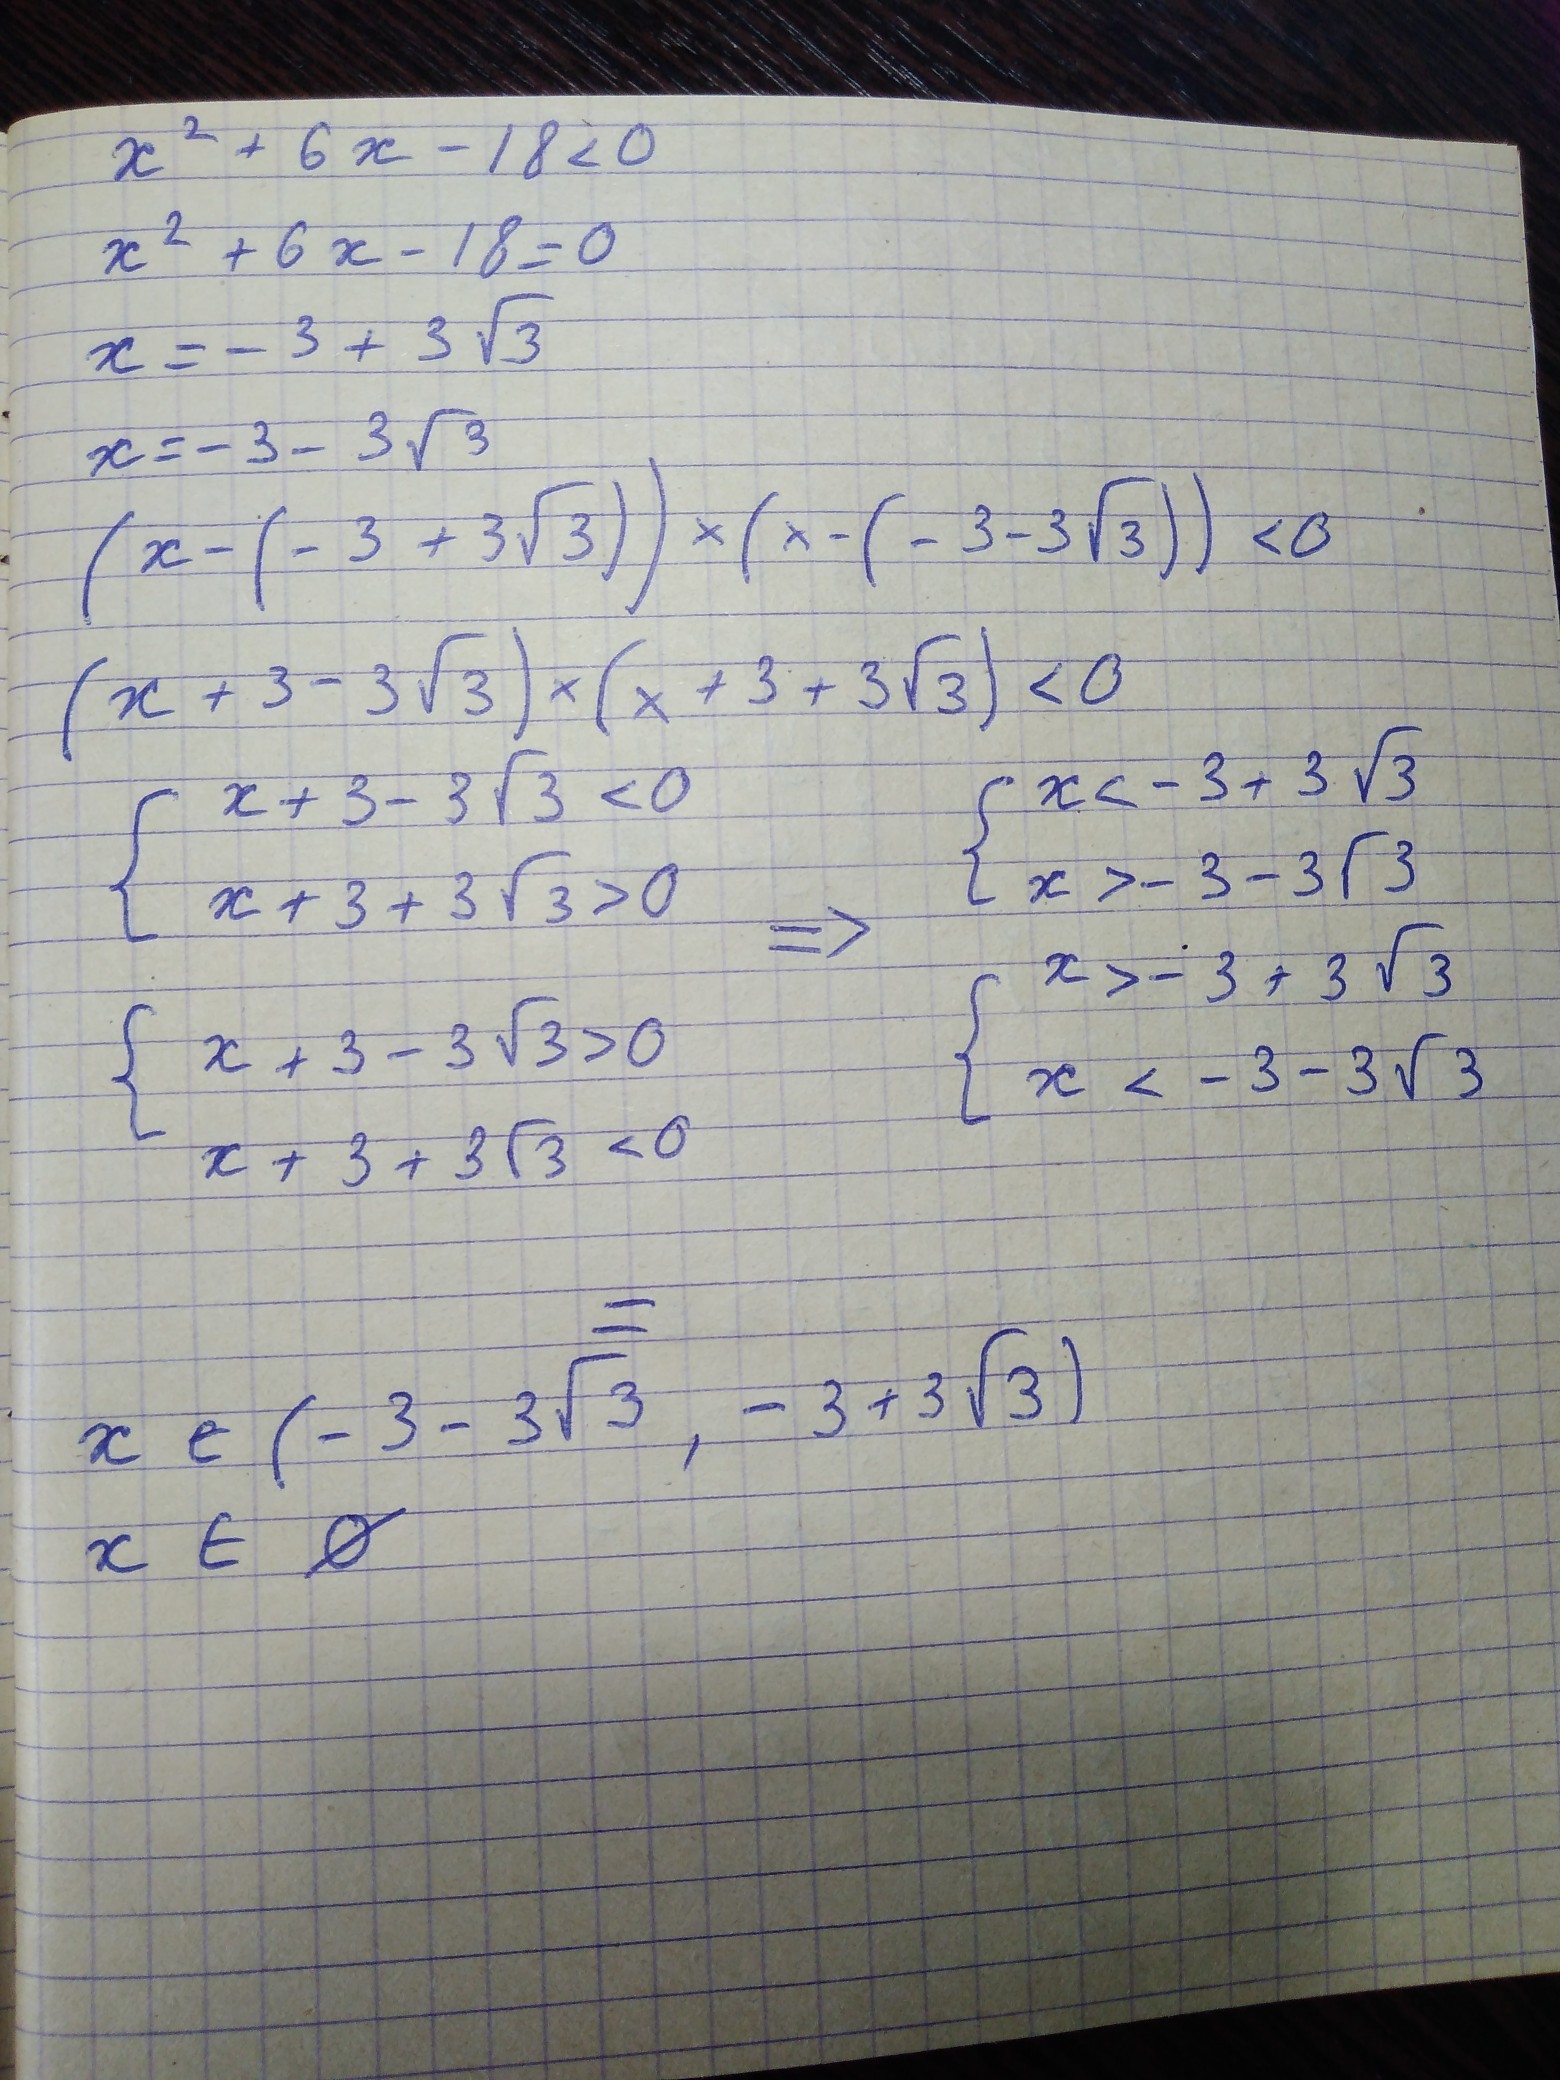 x² + 6x - 18 < 0
x² + 6x - 18 = 0
x = -3 + 3√3
x = -3 - 3√3
(x - (-3 + 3√3)) × (x - (-3 - 3√3)) < 0
(x + 3 - 3√3) × (x + 3 + 3√3) < 0
{ x + 3 - 3√3 < 0
x + 3 + 3√3 > 0
{ x + 3 - 3√3 > 0
x + 3 + 3√3 < 0
=>
{ x < -3 + 3√3
x > -3 - 3√3
{ x > -3 + 3√3
x < -3 - 3√3
=
x ∈ (-3 - 3√3, -3 + 3√3)
x ∈ ∅